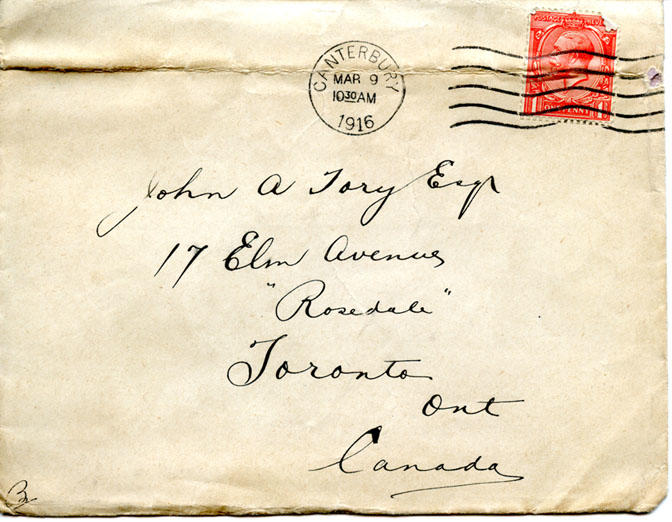 POSTAGE
CANTERBURY
MAR 9
10 30 AM
1916
ONE PENNY
John A Tory Esqr
17 Elm Avenue
"Rosedale"
Toronto
Ont
Canada